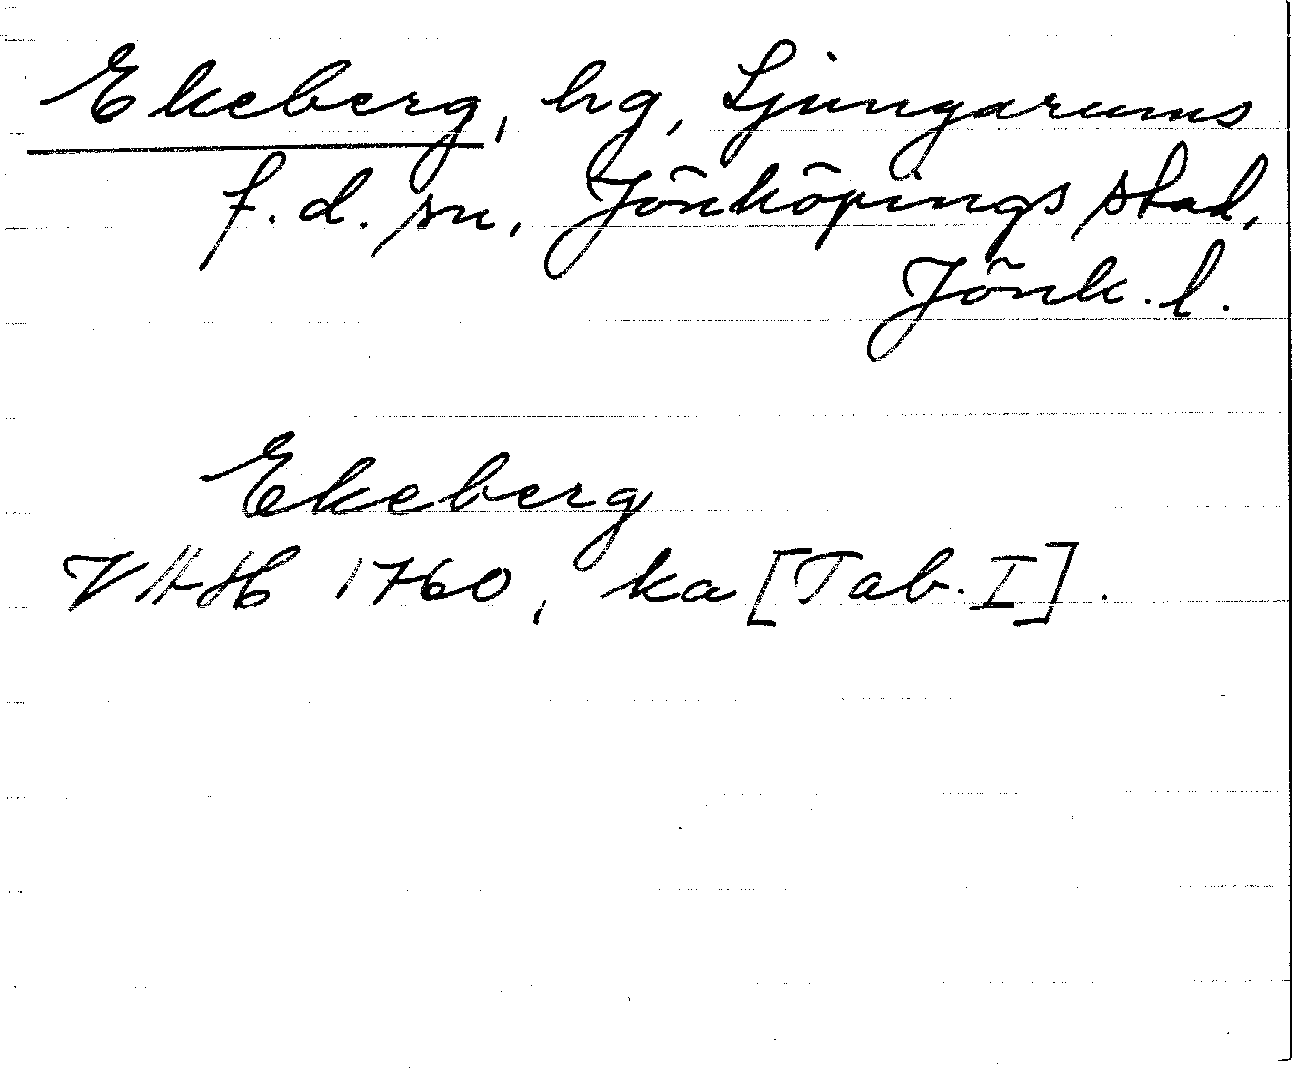 Ekeberg, hg, Ljungarums
f.d. sn, Jönköpings stad,
Jönk. l.
Ekeberg
VAH 1760, ka [Tab. I].